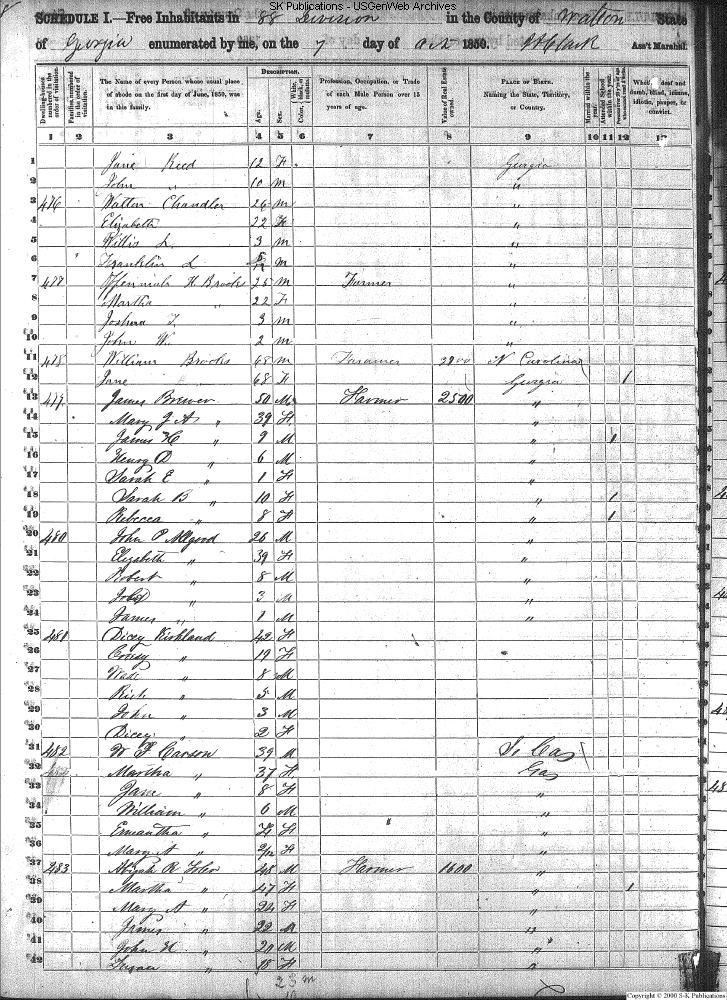 SK Publications - USGenWeb Archives
SCHEDULE I.—Free Inhabitants in 88 Division in the County of Walton State
of Georgia enumerated by me, on the 7 day of Oct 1850. Ass't Marshal.
Dwelling-houses numbered in the order of visitation.
Families numbered in the order of visitation.
The Name of every Person whose usual place of abode on the first day of June, 1850, was in this family.
DESCRIPTION.
Age.
Sex.
Color, White, black, or mulatto.
Profession, Occupation, or Trade of each Male Person over 15 years of age.
Value of Real Estate owned.
PLACE OF BIRTH. Naming the State, Territory, or Country.
Married within the year.
Attended School within the year.
Whether deaf and dumb, blind, insane, idiotic, pauper, or convict.
1 2 3 4 5 6 7 8 9 10 11 12 13
1 Jane Reed 12 F Georgia
2 John " 10 m "
3 476 Walton Chandler 26 m "
4 Elizabeth 22 F "
5 Willis L. 3 m "
6 Franklin L m "
7 477 H Brooks 25 m Farmer "
8 Martha " 22 F "
9 Joshua T. 3 m "
10 John W. 2 m "
11 478 William Brooks 68 m N Carolina
12 Jane 68 F Georgia 1
13 479 James Brewer 50 M Farmer 2500 "
14 Mary J A " 39 F "
15 James H " 9 M " 1
16 Henry D " 6 M "
17 Sarah E " 1 F "
18 Sarah B " 10 F " 1
19 Rebecca " 8 F " 1
20 480 John P Allgood 26 M "
21 Elizabeth " 39 F "
22 Robert " 8 M "
23 " 3 M "
24 James " 1 M "
25 481 Dicey Kirkland 42 F
26 " 19 F
27 Wade " 8 M
28 Rich " 5 M
29 John " 3 M
30 Dicey " 2 F
31 482 W F Carson 39 M So Ca
32 Martha " 37 F Ga
33 Jane " 8 F "
34 William " 6 M "
35 Emantha " F "
36 Mary A " 2/12 F "
37 483 Abijah R 48 M Farmer 1600 "
38 Martha " 47 F " 1
39 Mary A " 24 F "
40 James " 22 M "
41 John H " 20 M "
42 " 18 F "
23 m
Copyright © 2000 S-K Publications